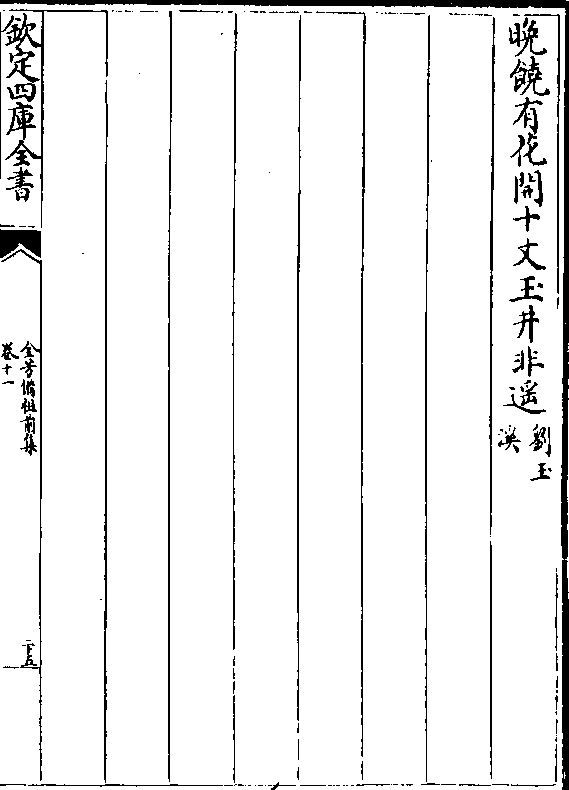 晚饒有花開十丈玉井非遥劉玉
溪
欽定四庫全書
全芳備祖前集
卷十一
二十五